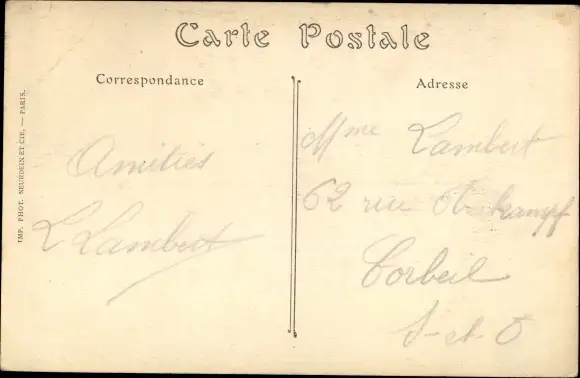 Carte Postale
Correspondance
Adresse
Amitiés
L Lambert
Mme Lambert
62 rue Oberkampf
Corbeil
S-et-O
IMP. PHOT. NEURDEIN ET CIE. — PARIS.